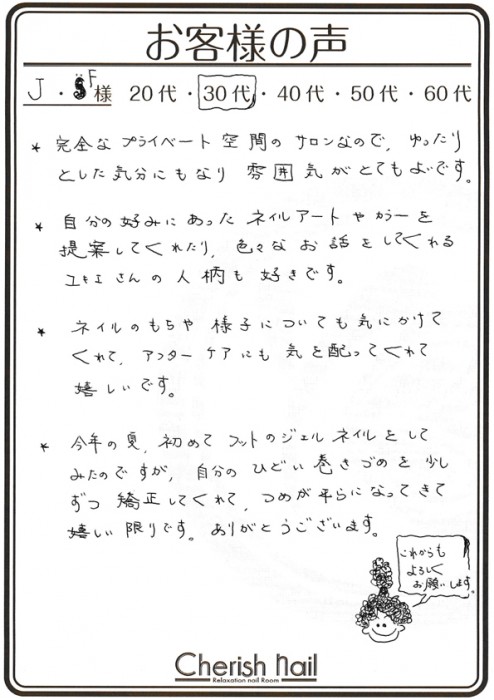 お客様の声
J・F様 20代・30代・40代・50代・60代
* 完全なプライベート空間のサロンなので、ゆったり
とした気分にもなり 雰囲気がとてもよいです。
* 自分の好みにあった ネイルアートやカラーを
提案してくれたり、色々なお話をしてくれる
ユキエさんの人柄も好きです。
* ネイルのもちや様子についても気にかけて
くれて、アフターケアにも気を配ってくれて
嬉しいです。
* 今年の夏、初めてフットのジェルネイルをして
みたのですが、自分のひどい巻きづめを少し
ずつ矯正してくれて、つめが平らになってきて
嬉しい限りです。ありがとうございます。
これからも
よろしく
お願いします。
Cherish nail
Relaxation nail Room